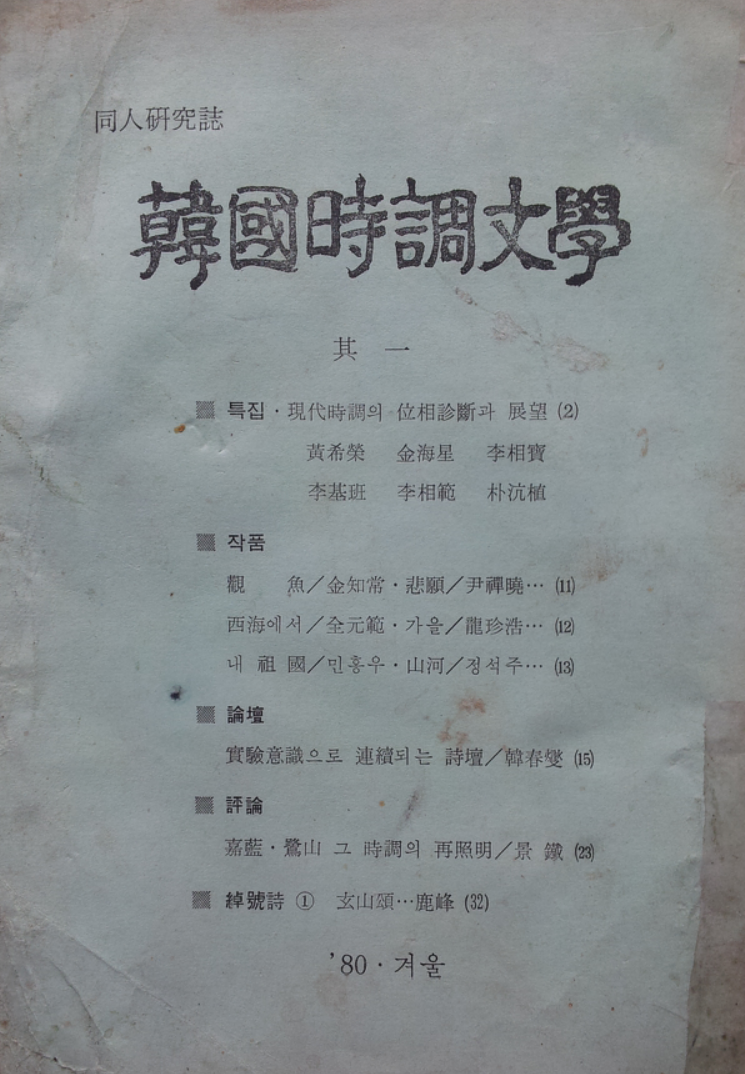 同人硏究誌
韓國時調文學
其 一
특집·現代時調의 位相診斷과 展望 (2)
黃希榮 金海星 李相寶
李基班 李相範 朴沆植
作품
觀 魚／金知常·悲願／尹禪曉… (11)
西海에서／全元範·가을／龍珍浩… (12)
내 祖 國／민홍우·山河／정석주… (13)
論壇
實驗意識으로 連續되는 詩壇／韓春燮 (15)
評論
嘉藍·鷺山 그 時調의 再照明／景 鐵 (23)
綽號詩 ① 玄山頌…鹿峰 (32)
'80·겨울